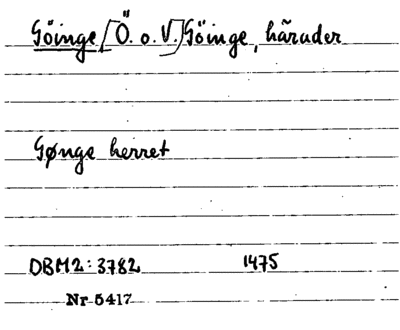 Göinge, [Ö. o. V.] Göinge, härader
Gønge herret
DBM2:3782 1475
Nr 5417